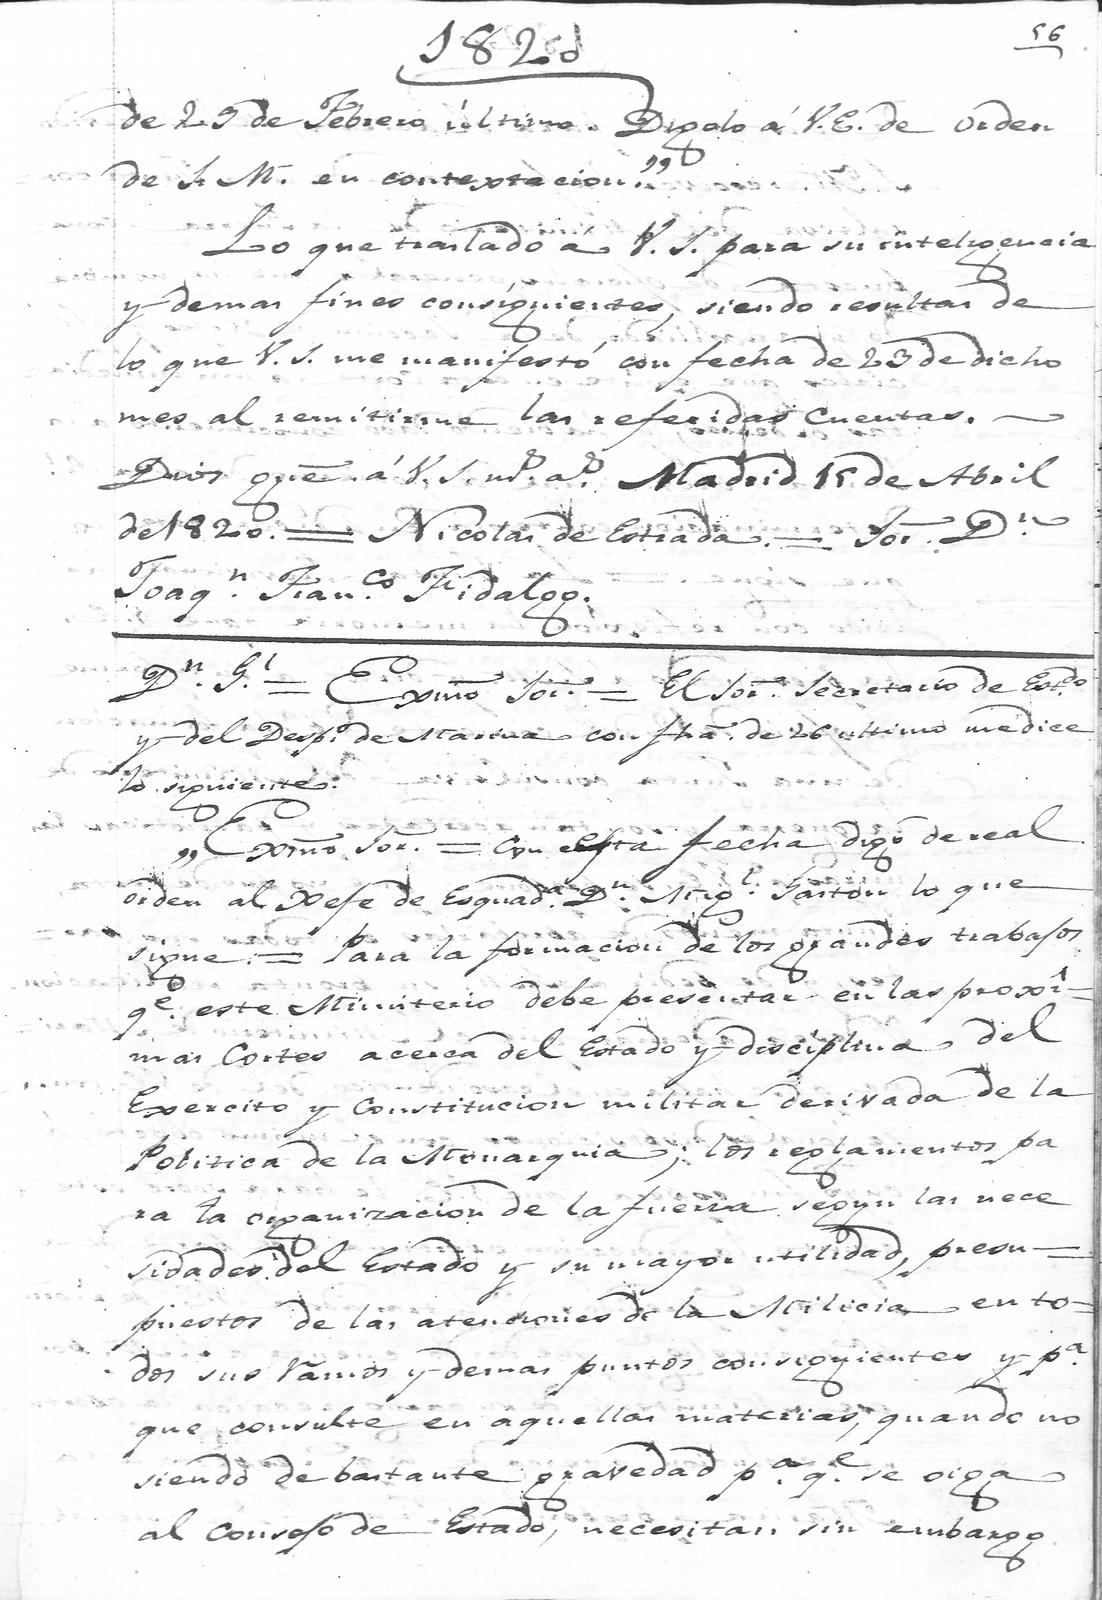 56
1820
de 25 de Febrero último. Digolo á V.E. de orden
de S. M. en contextacion."
Lo que traslado á V. S. para su inteligencia
y demas fines consiguientes, siendo resultas de
lo que V. S. me manifestó con fecha de 23 de dicho
mes al remitirme las referidas cuentas.
Dios gue. á V. S. ms. as. Madrid 15 de Abril
de 1820. = Nicolas de Estrada. = Sor. Dn.
Joaqn. Franco. Hidalgo.
Dn. Gl = Exmo Sor. = El Sor. Secretario de Estdo
y del Despo. de Marina con fha. de 26 ultimo me dice
lo siguiente.
"Exmo Sor. = Con esta fecha digo de real
orden al Xefe de Esquada. Dn. Migl. Gaston lo que
sigue = Para la formacion de los grandes trabajos
qe. este Ministerio debe presentar en las proxi=
mas Cortes acerca del Estado y disciplina del
Exercito y Constitucion militar derivada de la
Politica de la Monarquia; los reglamentos pa
ra la organizacion de la fuerza segun las nece
sidades del Estado y su mayor utilidad, presu=
puestos de las atenciones de la Milicia en to=
dos sus Ramos y demas puntos consiguientes y pa.
que consulte en aquellas materias, quando no
siendo de bastante gravedad pa. qe. se oiga
al Consejo de Estado, necesitan sin embargo